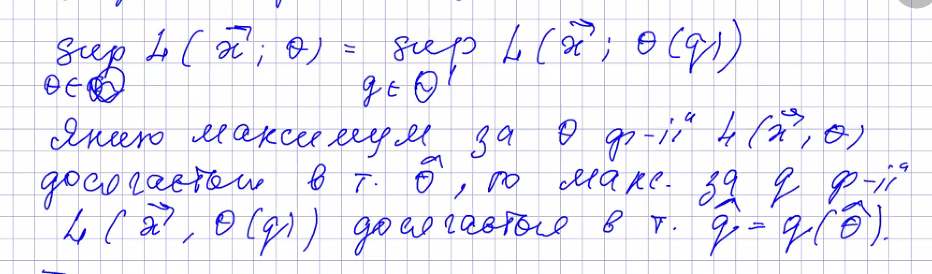 sup L(x⃗; θ) = sup L(x⃗; θ(q))
θ∈Θ q∈Θ'
Якщо максимум за θ ф-ії L(x⃗, θ)
досягається в т. θ̂, то макс. за q ф-ії
L(x⃗, θ(q)) досягається в т. q̂ = q(θ̂).